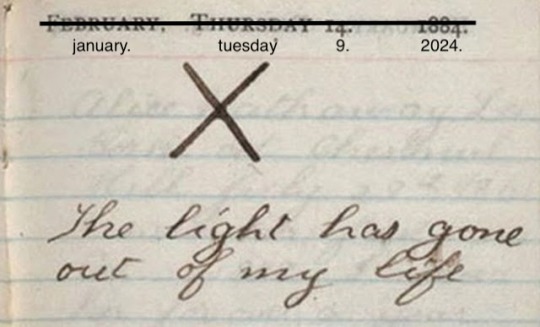 FEBRUARY. THURSDAY 14. 1884.
january. tuesday 9. 2024.
X
The light has gone
out of my life